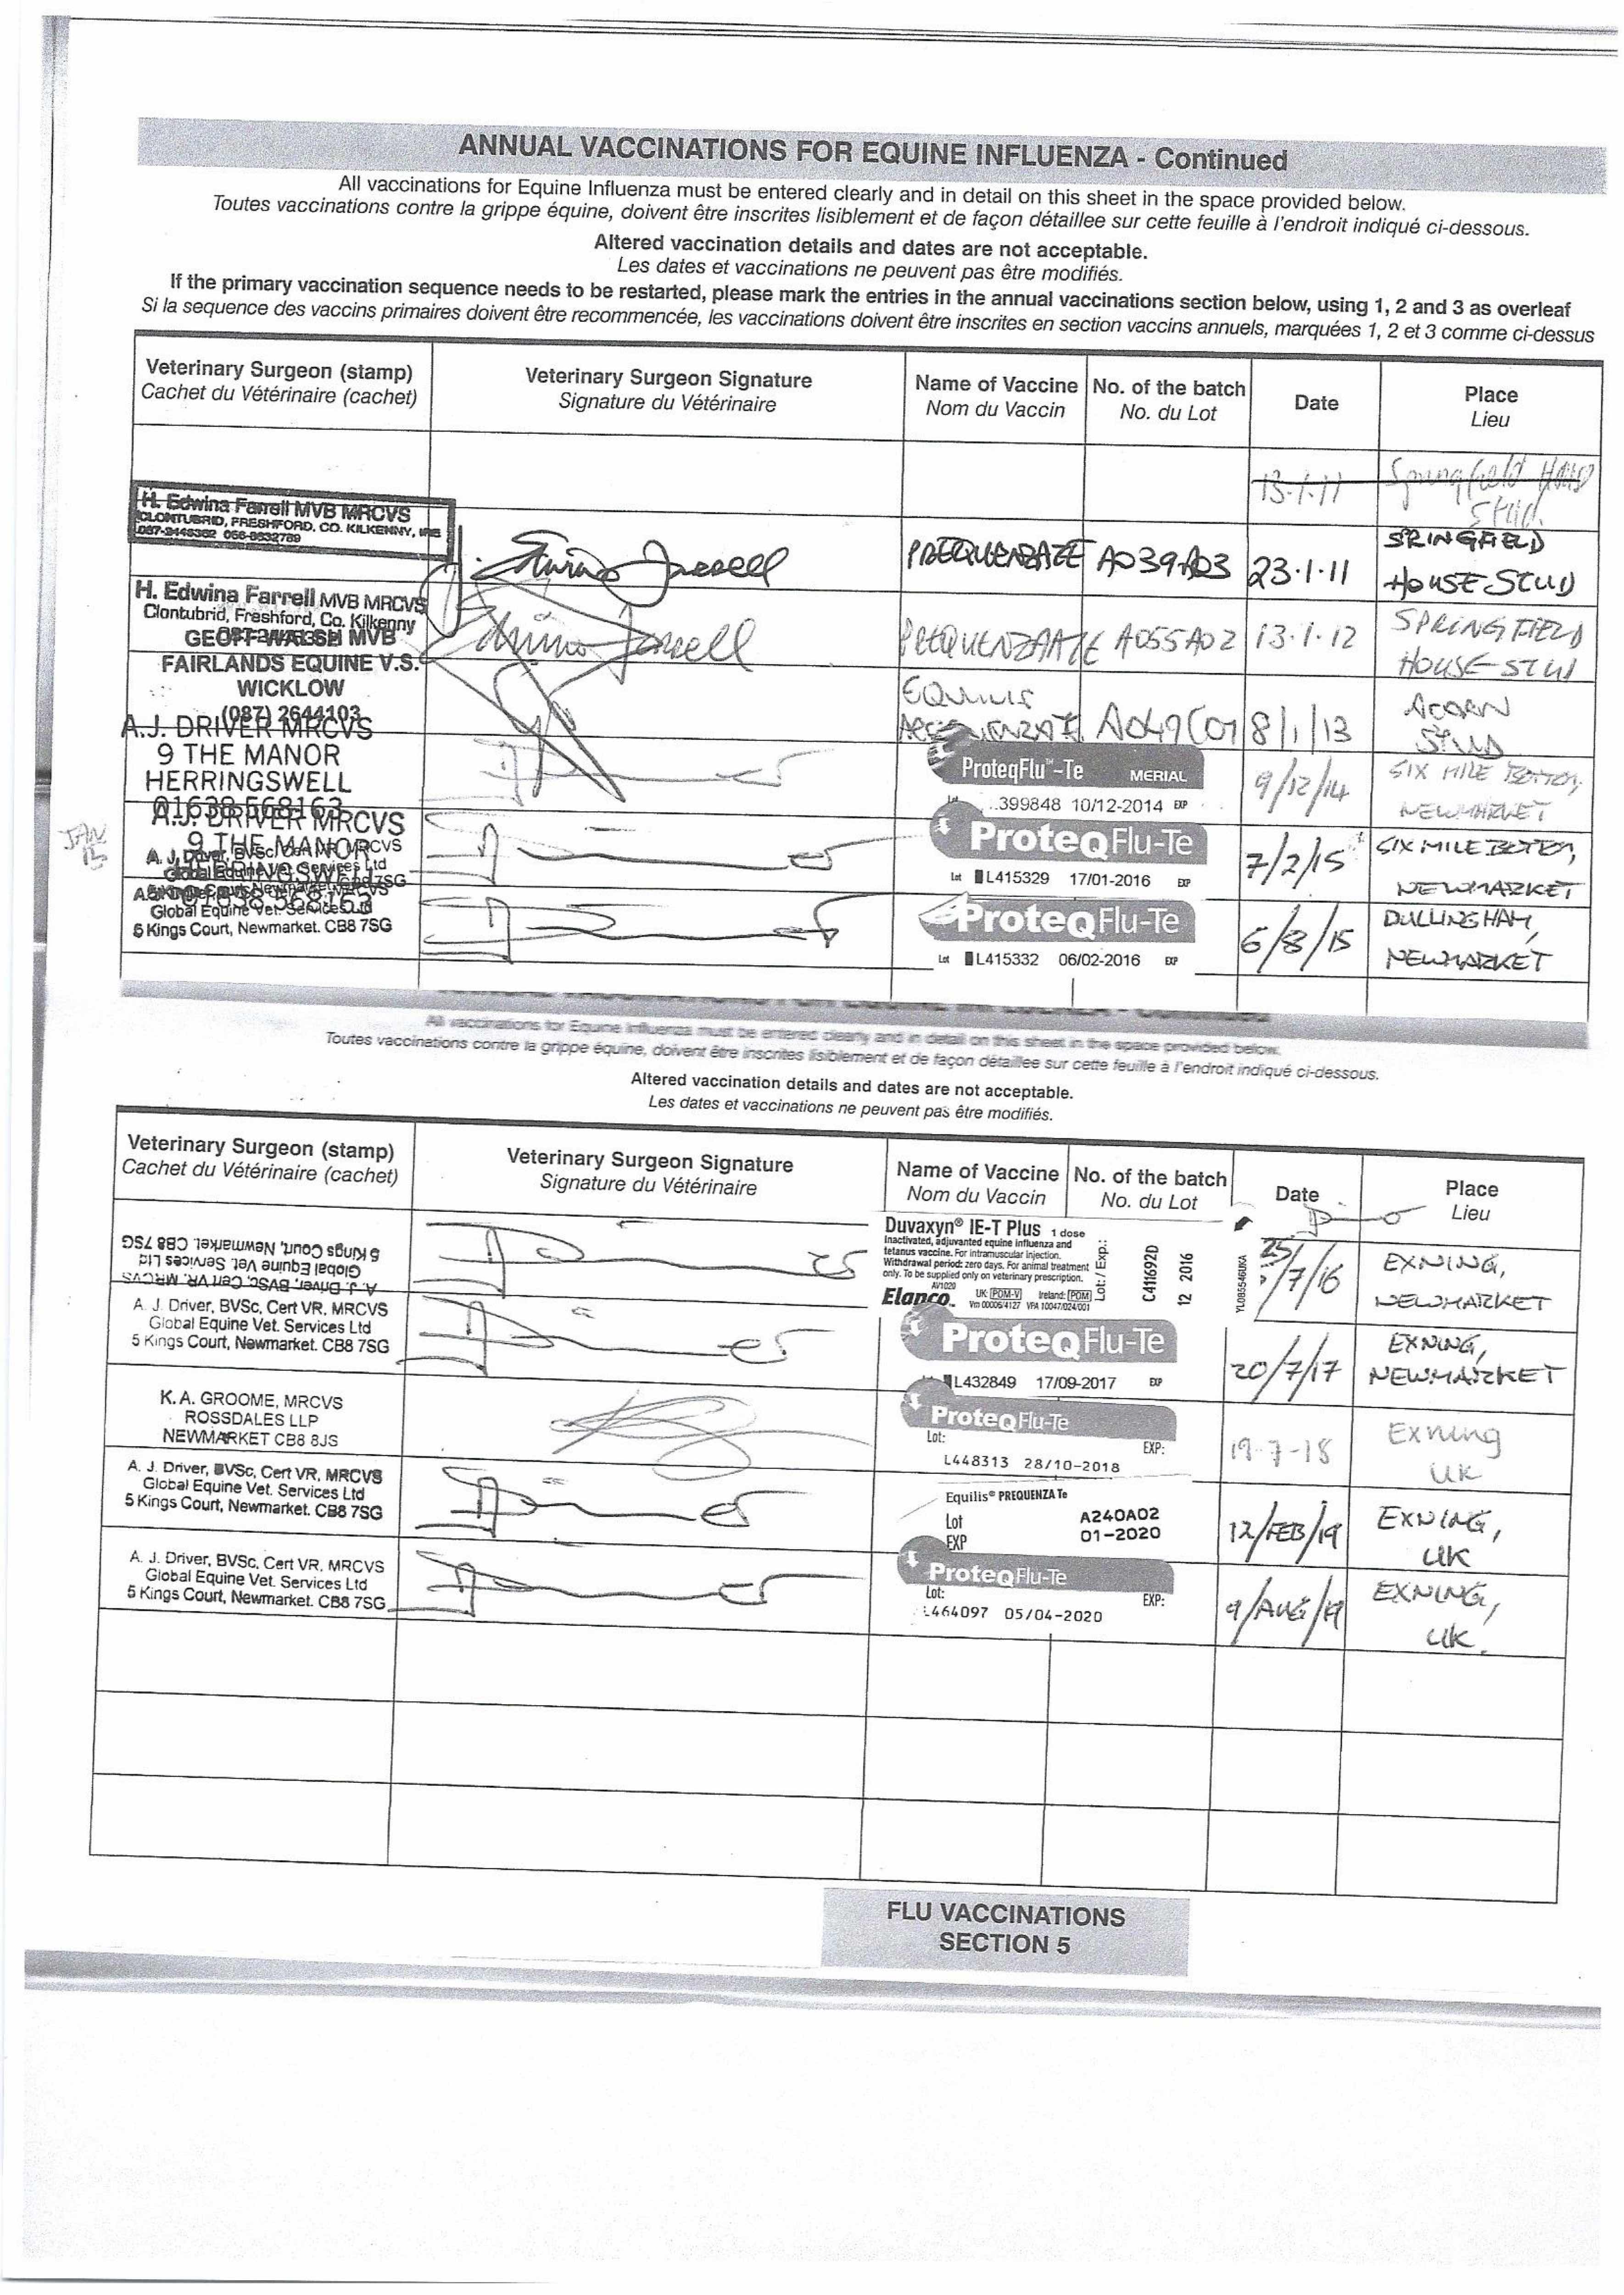 ANNUAL VACCINATIONS FOR EQUINE INFLUENZA - Continued
All vaccinations for Equine Influenza must be entered clearly and in detail on this sheet in the space provided below.
Toutes vaccinations contre la grippe équine, doivent être inscrites lisiblement et de façon détaillee sur cette feuille à l'endroit indiqué ci-dessous.
Altered vaccination details and dates are not acceptable.
Les dates et vaccinations ne peuvent pas être modifiés.
If the primary vaccination sequence needs to be restarted, please mark the entries in the annual vaccinations section below, using 1, 2 and 3 as overleaf
Si la sequence des vaccins primaires doivent être recommencée, les vaccinations doivent être inscrites en section vaccins annuels, marquées 1, 2 et 3 comme ci-dessus
Veterinary Surgeon (stamp) Veterinary Surgeon Signature Name of Vaccine No. of the batch Date Place
Cachet du Vétérinaire (cachet) Signature du Vétérinaire Nom du Vaccin No. du Lot Lieu
13.1.11 Springfield House
Stud
H. Edwina Farrell MVB MRCVS
CLONTUBRID, FRESHFORD, CO. KILKENNY, IRE
A039A03 23.1.11 SRINGFIELD
HOUSE STUD
H. Edwina Farrell MVB MRCVS
Clontubrid, Freshford, Co. Kilkenny
A055A02 13.1.12 SPRINGFIELD
HOUSE STUD
GEOFF WALSH MVB
FAIRLANDS EQUINE V.S.
WICKLOW
(087) 2644103
8/1/13 ACORN
STUD
A.J. DRIVER MRCVS
9 THE MANOR
HERRINGSWELL
01638 568163
ProteqFlu™-Te MERIAL
399848 10/12-2014 EXP
9/12/14 SIX MILE BOTTOM,
NEWMARKET
JAN
13
A.J. DRIVER MRCVS
9 THE MANOR
ProteqFlu-Te
Lot L415329 17/01-2016 EXP
7/2/15 SIX MILE BOTTOM,
NEWMARKET
Global Equine Vet. Services Ltd
5 Kings Court, Newmarket. CB8 7SG
ProteqFlu-Te
Lot L415332 06/02-2016 EXP
6/8/15 DULLINGHAM,
NEWMARKET
All vaccinations for Equine Influenza must be entered clearly and in detail on this sheet in the space provided below.
Toutes vaccinations contre la grippe équine, doivent être inscrites lisiblement et de façon détaillee sur cette feuille à l'endroit indiqué ci-dessous.
Altered vaccination details and dates are not acceptable.
Les dates et vaccinations ne peuvent pas être modifiés.
Veterinary Surgeon (stamp) Veterinary Surgeon Signature Name of Vaccine No. of the batch Date Place
Cachet du Vétérinaire (cachet) Signature du Vétérinaire Nom du Vaccin No. du Lot Lieu
A. J. Driver, BVSc, Cert VR, MRCVS
Global Equine Vet. Services Ltd
5 Kings Court, Newmarket. CB8 7SG
Duvaxyn® IE-T Plus 1 dose
Inactivated, adjuvanted equine influenza and
tetanus vaccine. For intramuscular injection.
Withdrawal period: zero days. For animal treatment
only. To be supplied only on veterinary prescription.
AV1020
Elanco UK: POM-V Ireland: POM
Vm 00006/4127 VPA 10047/024/001
Lot: / Exp.:
C411692D
12 2016
YL085546UKA
25/7/16 EXNING,
NEWMARKET
A. J. Driver, BVSc, Cert VR, MRCVS
Global Equine Vet. Services Ltd
5 Kings Court, Newmarket. CB8 7SG
ProteqFlu-Te
L432849 17/09-2017 EXP
20/7/17 EXNING,
NEWMARKET
K.A. GROOME, MRCVS
ROSSDALES LLP
NEWMARKET CB8 8JS
ProteqFlu-Te
Lot: EXP:
L448313 28/10-2018
19-7-18 Exning
UK
A. J. Driver, BVSc, Cert VR, MRCVS
Global Equine Vet. Services Ltd
5 Kings Court, Newmarket. CB8 7SG
Equilis® PREQUENZA Te
Lot A240A02
EXP 01-2020
12/FEB/19 EXNING,
UK
A. J. Driver, BVSc, Cert VR, MRCVS
Global Equine Vet. Services Ltd
5 Kings Court, Newmarket. CB8 7SG
ProteqFlu-Te
Lot: EXP:
L464097 05/04-2020
9/AUG/19 EXNING,
UK.
FLU VACCINATIONS
SECTION 5